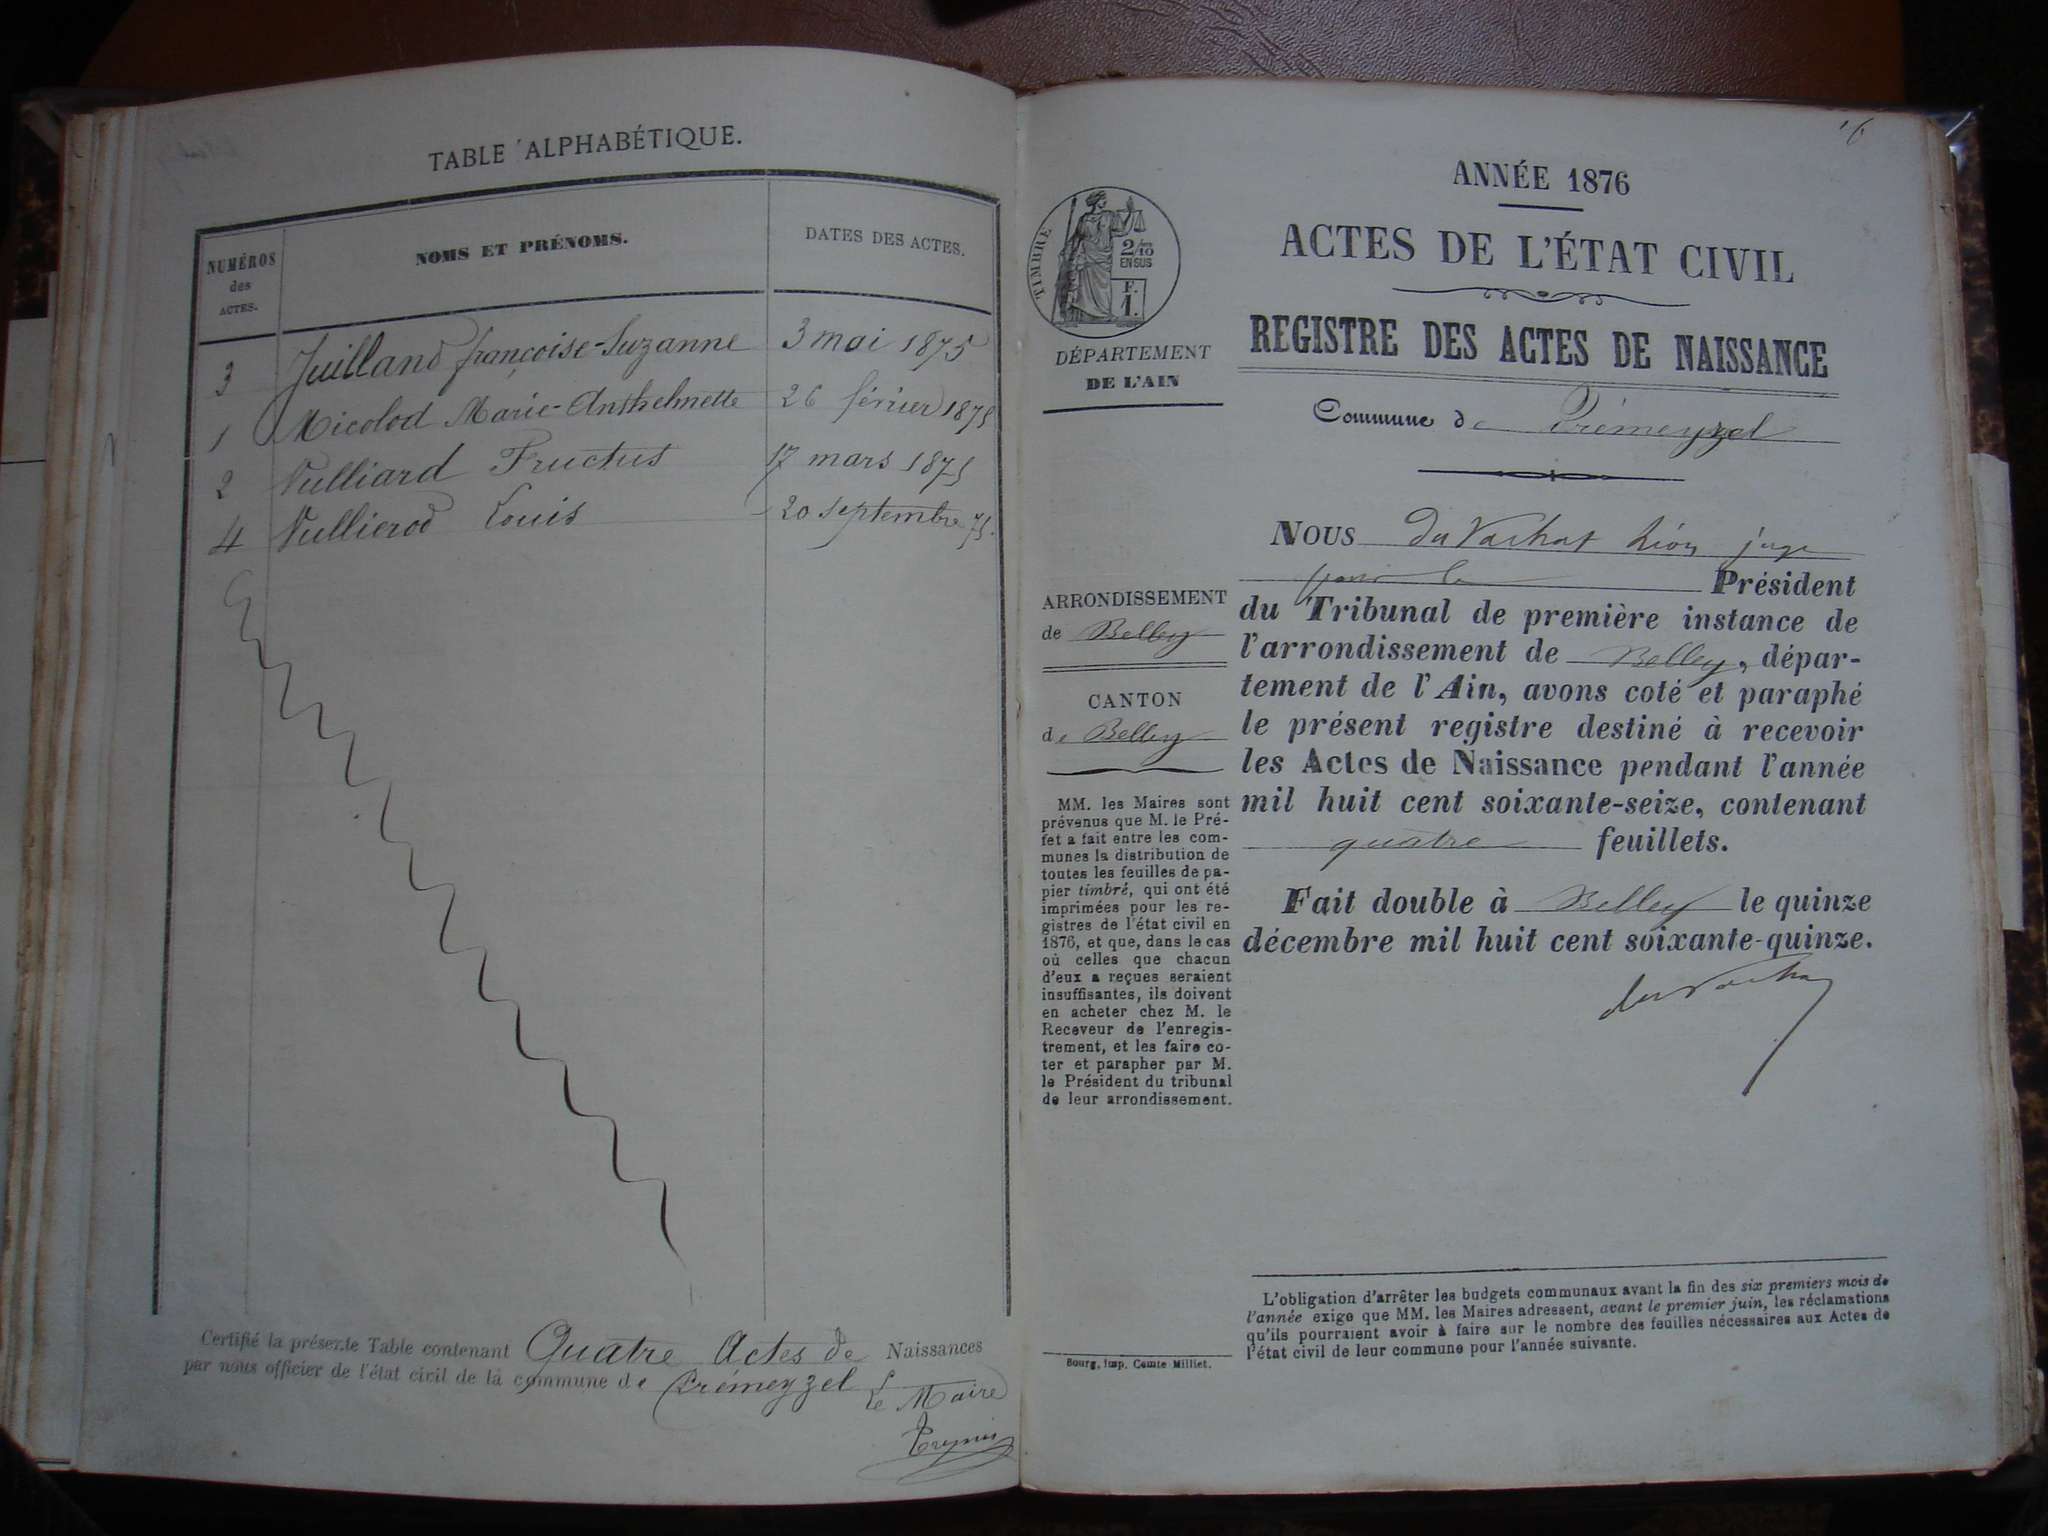 TABLE ALPHABÉTIQUE.
NUMÉROS des ACTES.
NOMS ET PRÉNOMS.
DATES DES ACTES.
3 Juilland françoise-Suzanne 3 mai 1875
1 Micolod Marie-Anthelmette 26 février 1875
2 Vulliard Fructus 17 mars 1875
4 Vullierod Louis 20 septembre 75.
Certifié la présente Table contenant Quatre Actes de Naissances
par nous officier de l'état civil de la commune de Prémeyzel
le Maire
ANNÉE 1876
ACTES DE L'ÉTAT CIVIL
REGISTRE DES ACTES DE NAISSANCE
Commune de Prémeyzel
TIMBRE
2/10
EN SUS
F.
1.
DÉPARTEMENT
DE L'AIN
ARRONDISSEMENT
de Belley
CANTON
de Belley
MM. les Maires sont
prévenus que M. le Pré-
fet a fait entre les com-
munes la distribution de
toutes les feuilles de pa-
pier timbré, qui ont été
imprimées pour les re-
gistres de l'état civil en
1876, et que, dans le cas
où celles que chacun
d'eux a reçues seraient
insuffisantes, ils doivent
en acheter chez M. le
Receveur de l'enregis-
trement, et les faire co-
ter et parapher par M.
le Président du tribunal
de leur arrondissement.
Bourg, imp. Comte Milliet.
NOUS du Vachat Léon juge
pour le Président
du Tribunal de première instance de
l'arrondissement de Belley, dépar-
tement de l'Ain, avons coté et paraphé
le présent registre destiné à recevoir
les Actes de Naissance pendant l'année
mil huit cent soixante-seize, contenant
quatre feuillets.
Fait double à Belley le quinze
décembre mil huit cent soixante-quinze.
du Vachat
L'obligation d'arrêter les budgets communaux avant la fin des six premiers mois de
l'année exige que MM. les Maires adressent, avant le premier juin, les réclamations
qu'ils pourraient avoir à faire sur le nombre des feuilles nécessaires aux Actes de
l'état civil de leur commune pour l'année suivante.